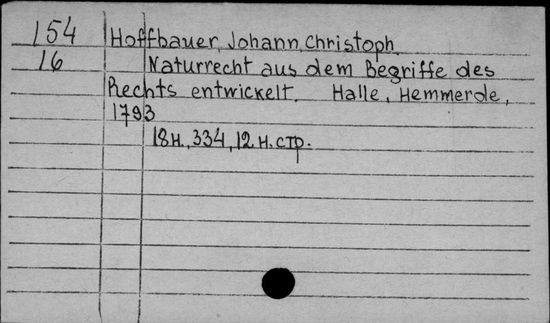 154 Hoffbauer, Johann Christoph.
16 Naturrecht aus dem Begriffe des
Rechts entwickelt. Halle, Hemmerde,
1793
18 н., 334, 12 н. стр.